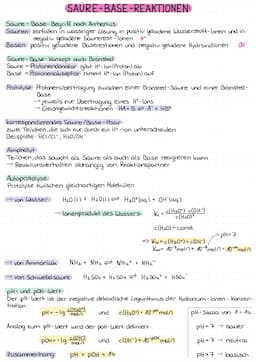 SÄURE-BASE-REAKTIONEN
Säure-Base-Begriff nach Arrhenius
Säuren: zerfallen in wässriger Lösung in positiv geladene Wasserstoff-Ionen und in
negativ geladene Säurerest-Ionen H⁺
Basen: positiv geladene Baserestionen und negativ geladene Hydroxidionen OH⁻
Säure-Base-Konzept nach Brønsted
Säure = Protonendonator gibt H⁺-Ion (Proton) ab
Base = Protonenakzeptor nimmt H⁺-Ion (Proton) auf
Protolyse: Protonenübertragung zwischen einer Brønsted-Säure und einer Brønsted-
Base
→ jeweils nur Übertragung eines H⁺-Ions
→ Gleichgewichtsreaktionen HA + B ⇌ A⁻ + HB⁺
korrespondierendes Säure/Base-Paar:
zwei Teilchen, die sich nur durch ein H⁺-Ion unterscheiden
Beispiele: HCl/Cl⁻, H₂O/OH⁻
Ampholyt:
Teilchen, das sowohl als Säure als auch als Base reagieren kann
→ Reaktionsverhalten abhängig von Reaktionspartner
Autoprotolyse:
Protolyse zwischen gleichartigen Molekülen
→ von Wasser: H₂O(l) + H₂O(l) ⇌ H₃O⁺(aq) + OH⁻(aq)
→ Ionenprodukt des Wassers
c(H₂O) = const.
pH = 7
→ von Ammoniak: NH₃ + NH₃ ⇌ NH₄⁺ + NH₂⁻
→ von Schwefelsäure: H₂SO₄ + H₂SO₄ ⇌ H₃SO₄⁺ + HSO₄⁻
pH- und pOH-Wert
Der pH-Wert ist der negative dekadische Logarithmus der Hydronium-Ionen-Konzen-
tration:
pH = -lg c(H₃O⁺)/mol/l und c(H₃O⁺) = 10⁻ᵖᴴ mol/l pH-Skala von 1-14
Analog zum pH-Wert wird der pOH-Wert definiert: pH < 7 → sauer
pOH = -lg c(OH⁻)/mol/l und c(OH⁻) = 10⁻ᵖᴼᴴ mol/l pH = 7 → neutral
Zusammenhang: pH + pOH = 14 pH > 7 → basisch